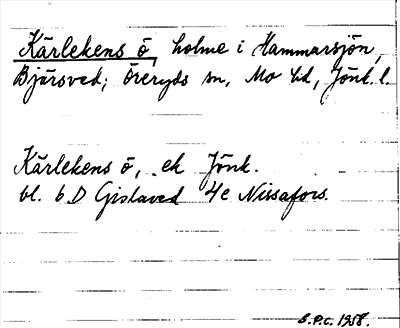 Kärlekens ö, holme i Hammarsjön,
Bjärsved; Öreryds sn, Mo hd, Jönk. l.
Kärlekens ö, ek Jönk.
bl. 6 D Gislaved 4e Nissafors.
S.P.C. 1958.